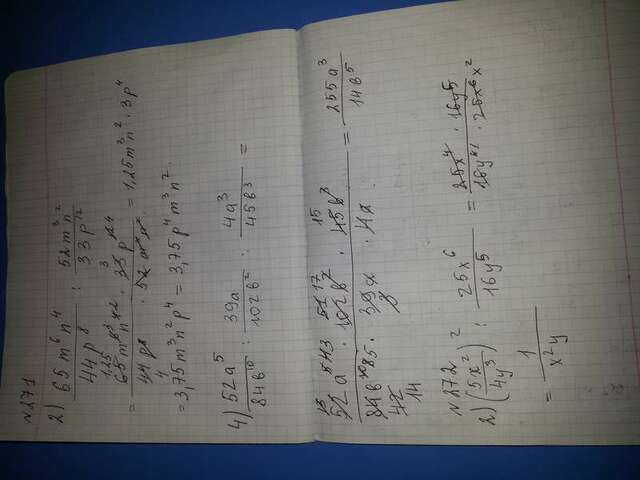 N 271
2) 65m⁶n⁴ / 44p⁸ : 52m³n² / 33p¹²
= 65m⁶n⁴ · 33p¹² / 44p⁸ · 52m³n² = 1,25m³n² · 3p⁴
= 3,75m³n²p⁴ = 3,75p⁴m³n².
4) 52a⁵ / 84b¹⁰ : 39a / 102b² : 4a³ / 45b³ =
= 255a³ / 14b⁵
N 272
2) (5x² / 4y³)² : 25x⁶ / 16y⁵ = 25x⁴ · 16y⁵ / 16y⁶ · 25x⁶x²
= 1 / x²y